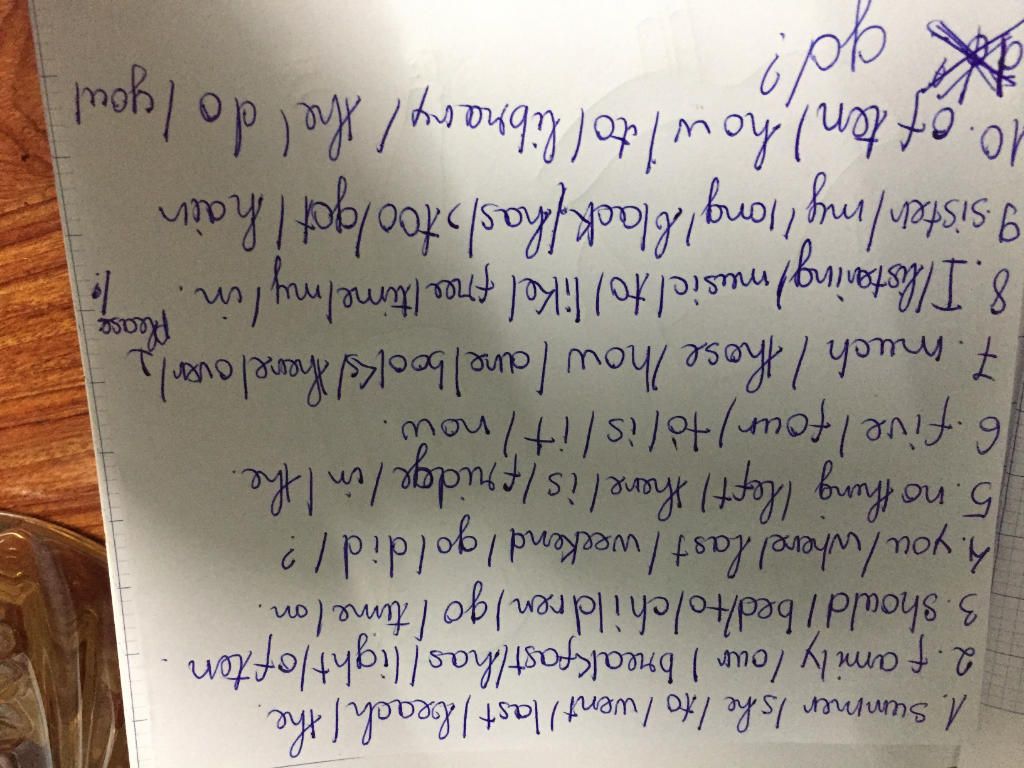 1. summer / she / to / went / last / beach / the.
2. family / our / breakfast / has / light / often.
3. should / bed / to / children / go / time / on.
4. you / where / last / weekend / go / did / ?
5. nothing / left / there / is / fridge / in / the.
6. five / four / to / is / it / now.
7. much / those / how / are / books / there / over / ?
please
8. I / listening / music / to / like / free / time / my / in.
9. sister / my / long / black / has / too / got / hair
10. often / how / to / library / the / do / you /
go?